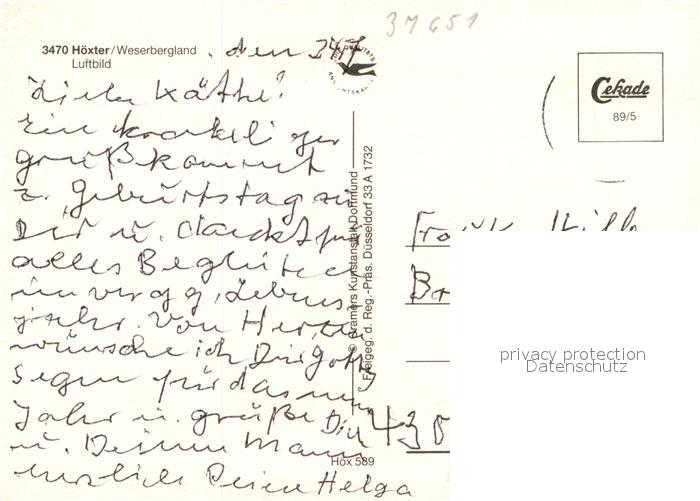 37651
3470 Höxter/Weserbergland
Luftbild
, den 24.7
QUALITÄTS
ANSICHTSKARTE
Cekade
89/5
Liebe Käthe!
Ein krakeliger
Gruß kommt
z. Geburtstag zu
Dir u. dankt für
alles Begleiten
im verg. Lebens-
jahr. Von Herzen
wünsche ich Dir Gottes
Segen für das neue
Jahr u. grüße Dich
u. Deinen Mann
herzlich Deine Helga
© Cramers Kunstanstalt Dortmund
Freigeg. d. Reg.-Präs. Düsseldorf 33 A 1732
Höx 589
Frau
430
privacy protection
Datenschutz